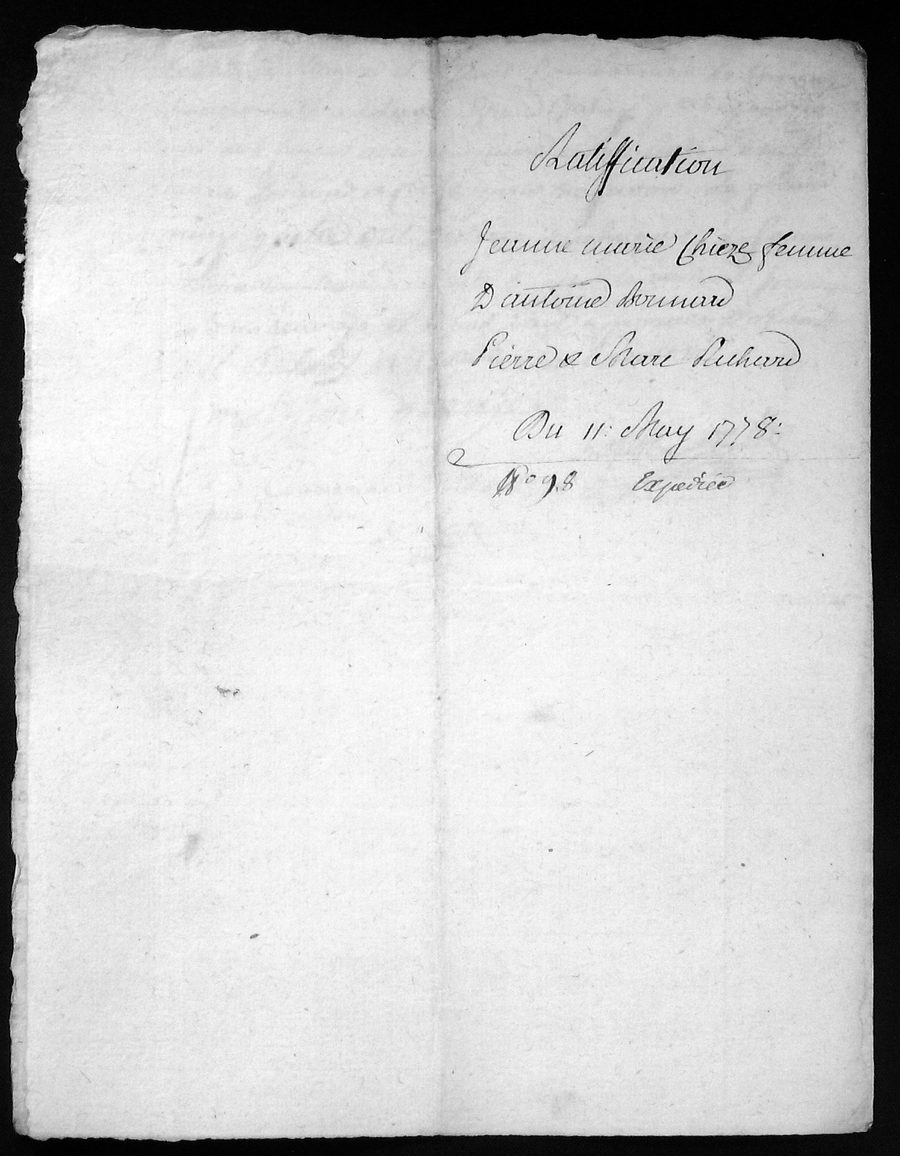 Ratiffication
Jeanne marie Chieze femme
D'antoine Bonnard
Pierre & Marc Richard
Du 11: May 1778:
N° 98 Expediée